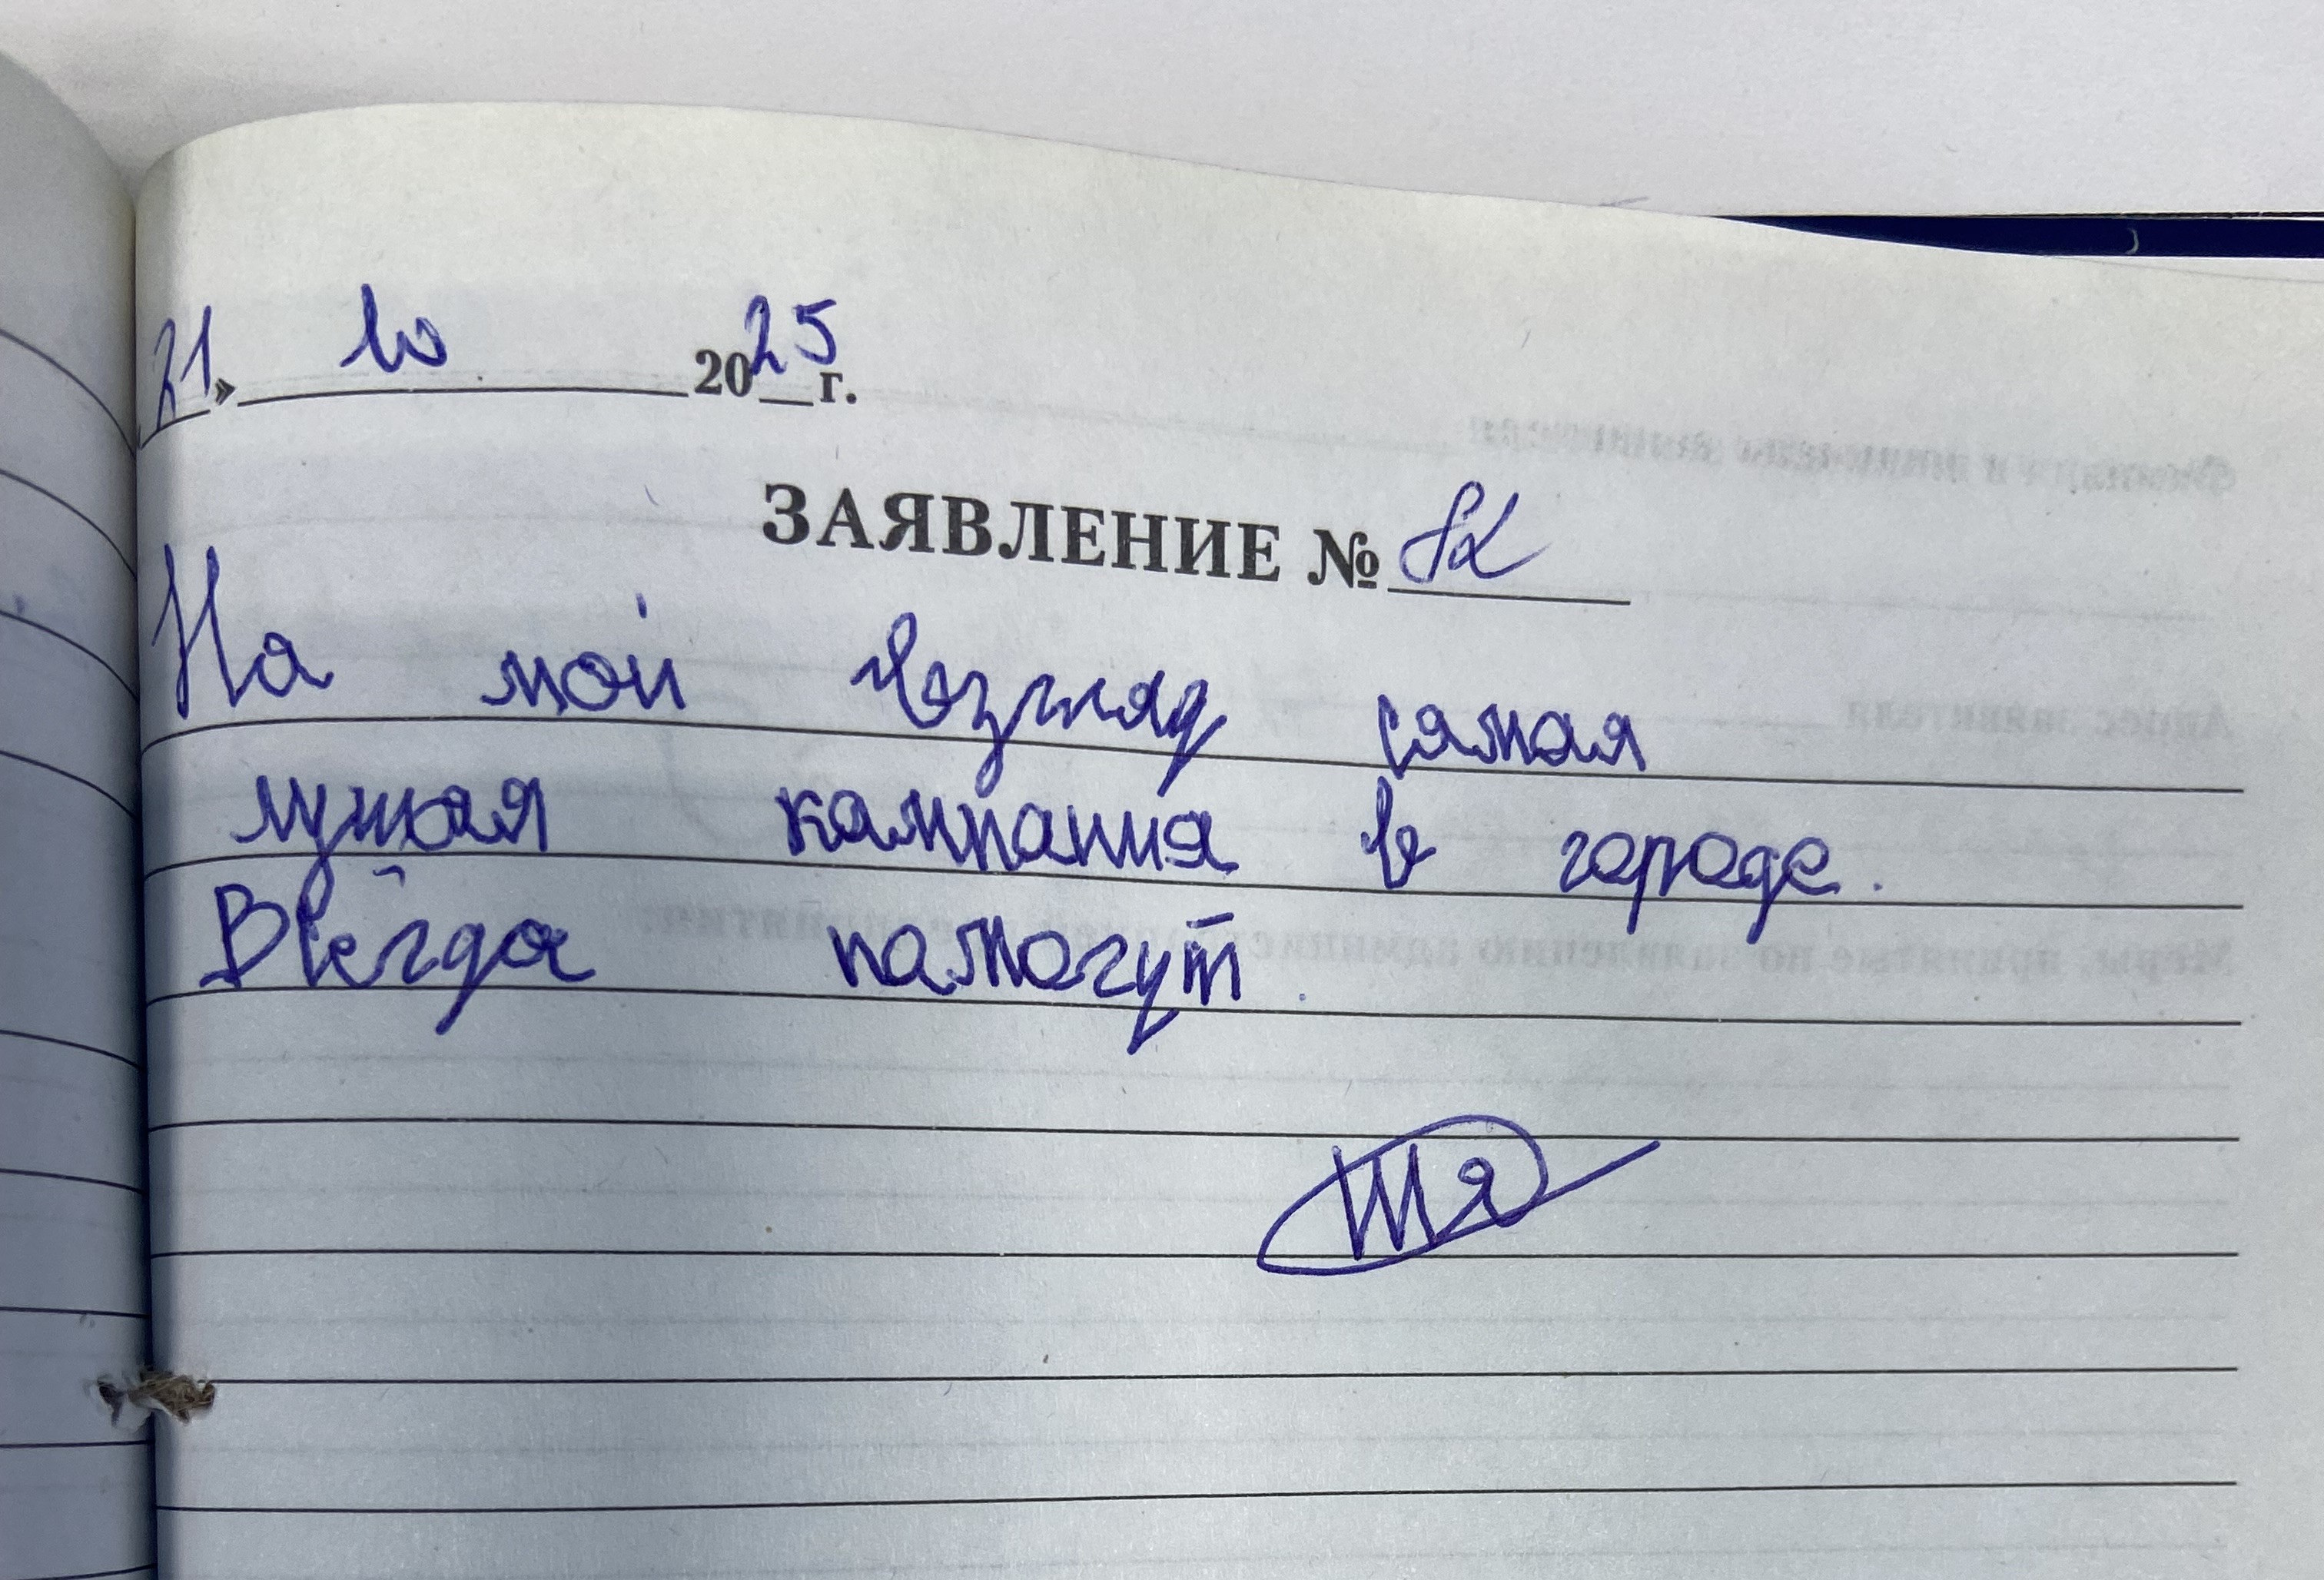 21» 10 2025 г.
ЗАЯВЛЕНИЕ № 82
На мой взгляд самая
лучшая кампания в городе.
Всегда памогут.